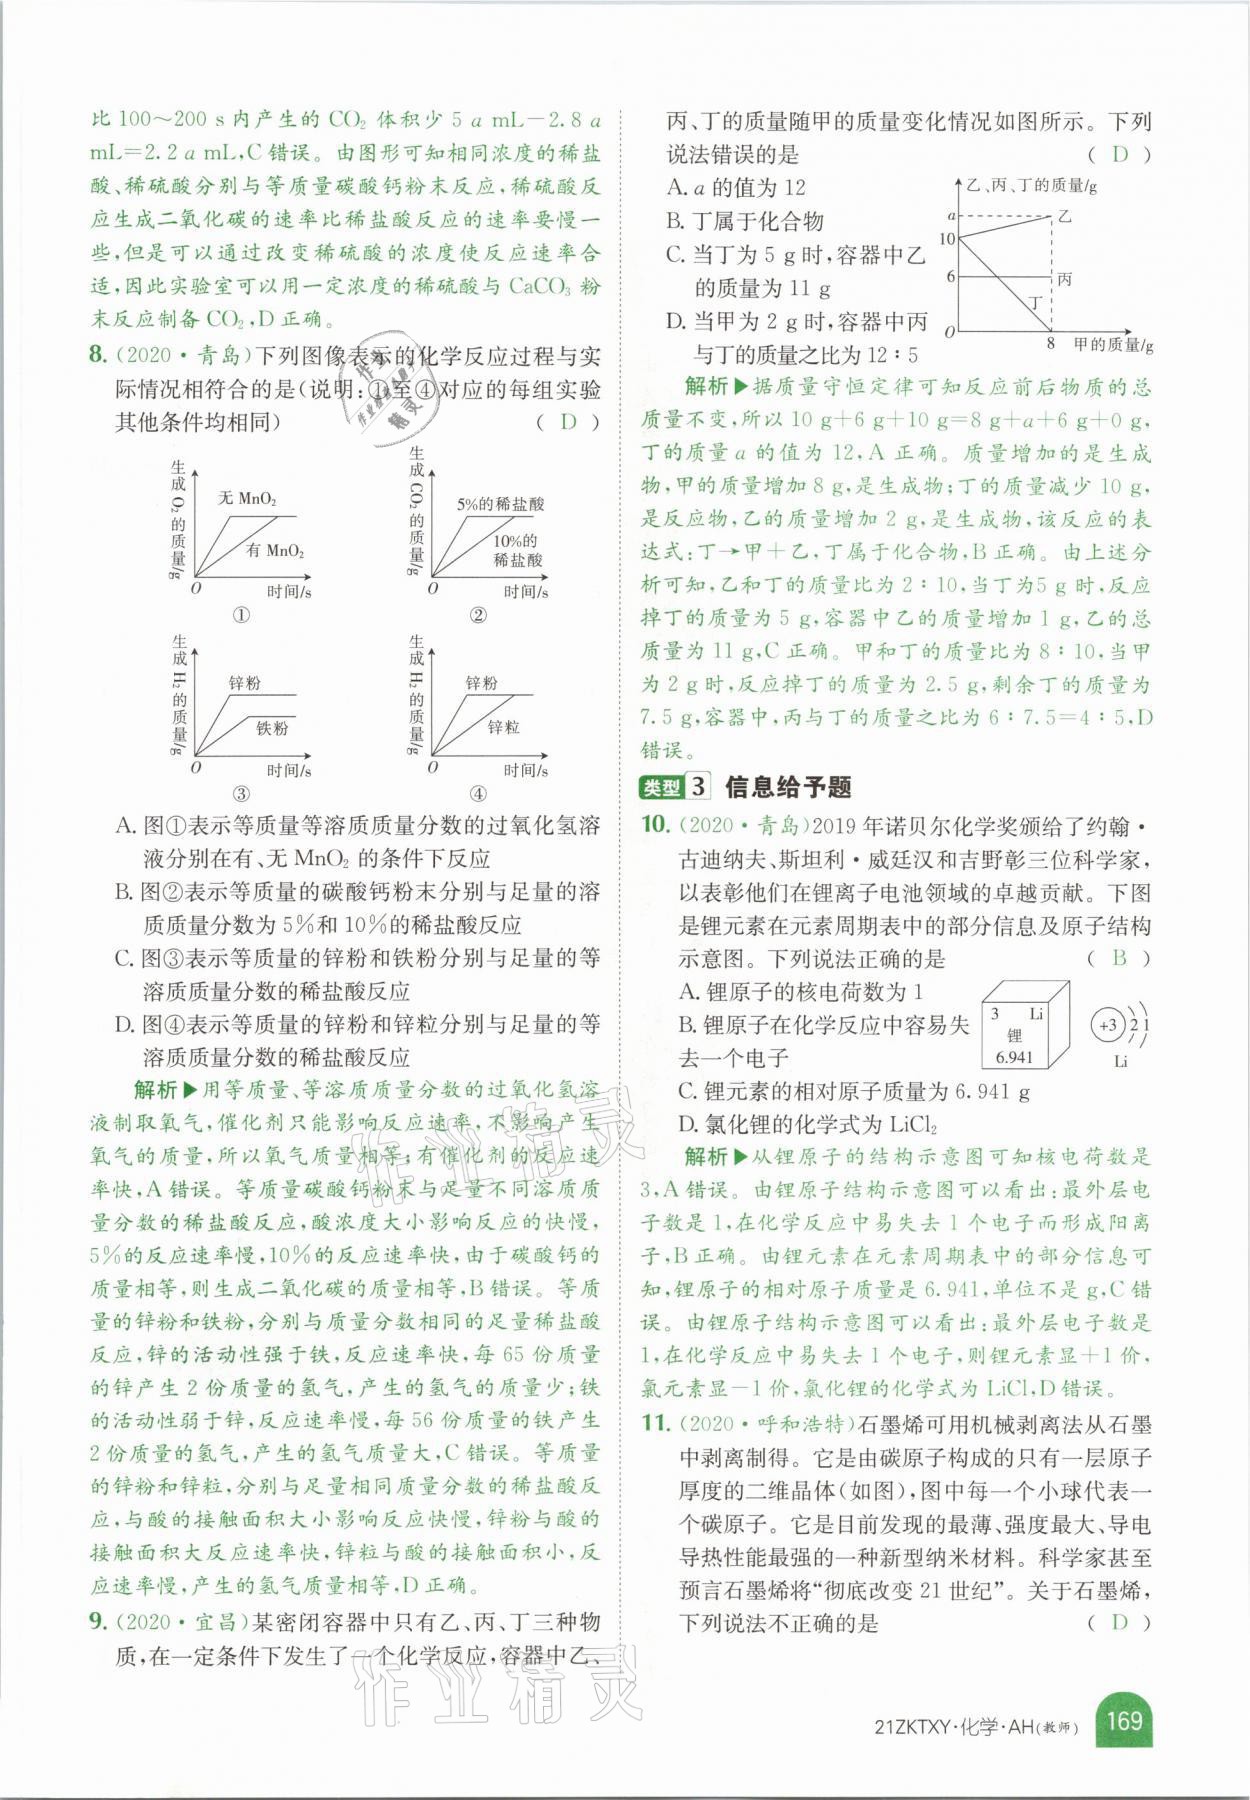 比100～200 s内产生的CO₂体积少5 a mL－2.8 a
mL=2.2 a mL,C错误。由图形可知相同浓度的稀盐
酸、稀硫酸分别与等质量碳酸钙粉末反应,稀硫酸反
应生成二氧化碳的速率比稀盐酸反应的速率要慢一
些,但是可以通过改变稀硫酸的浓度使反应速率合
适,因此实验室可以用一定浓度的稀硫酸与CaCO₃粉
末反应制备CO₂,D正确。
8.(2020·青岛)下列图像表示的化学反应过程与实
际情况相符合的是(说明:①至④对应的每组实验
其他条件均相同) ( D )
生成O₂的质量/g
无MnO₂
有MnO₂
O 时间/s
①
生成CO₂的质量/g
5%的稀盐酸
10%的
稀盐酸
O 时间/s
②
生成H₂的质量/g
锌粉
铁粉
O 时间/s
③
生成H₂的质量/g
锌粉
锌粒
O 时间/s
④
A.图①表示等质量等溶质质量分数的过氧化氢溶
液分别在有、无MnO₂的条件下反应
B.图②表示等质量的碳酸钙粉末分别与足量的溶
质质量分数为5%和10%的稀盐酸反应
C.图③表示等质量的锌粉和铁粉分别与足量的等
溶质质量分数的稀盐酸反应
D.图④表示等质量的锌粉和锌粒分别与足量的等
溶质质量分数的稀盐酸反应
解析▶用等质量、等溶质质量分数的过氧化氢溶
液制取氧气,催化剂只能影响反应速率,不影响产生
氧气的质量,所以氧气质量相等;有催化剂的反应速
率快,A错误。等质量碳酸钙粉末与足量不同溶质质
量分数的稀盐酸反应,酸浓度大小影响反应的快慢,
5%的反应速率慢,10%的反应速率快,由于碳酸钙的
质量相等,则生成二氧化碳的质量相等,B错误。等质
量的锌粉和铁粉,分别与质量分数相同的足量稀盐酸
反应,锌的活动性强于铁,反应速率快,每65份质量
的锌产生2份质量的氢气,产生的氢气的质量少;铁
的活动性弱于锌,反应速率慢,每56份质量的铁产生
2份质量的氢气,产生的氢气质量大,C错误。等质量
的锌粉和锌粒,分别与足量相同质量分数的稀盐酸反
应,与酸的接触面积大小影响反应快慢,锌粉与酸的
接触面积大反应速率快,锌粒与酸的接触面积小,反
应速率慢,产生的氢气质量相等,D正确。
9.(2020·宜昌)某密闭容器中只有乙、丙、丁三种物
质,在一定条件下发生了一个化学反应,容器中乙、
丙、丁的质量随甲的质量变化情况如图所示。下列
说法错误的是 ( D )
A.a的值为12
B.丁属于化合物
C.当丁为5 g时,容器中乙
的质量为11 g
D.当甲为2 g时,容器中丙
与丁的质量之比为12∶5
乙、丙、丁的质量/g
a
乙
10
6
丙
丁
O 8 甲的质量/g
解析▶据质量守恒定律可知反应前后物质的总
质量不变,所以10 g+6 g+10 g=8 g+a+6 g+0 g,
丁的质量a的值为12,A正确。质量增加的是生成
物,甲的质量增加8 g,是生成物;丁的质量减少10 g,
是反应物,乙的质量增加2 g,是生成物,该反应的表
达式:丁→甲+乙,丁属于化合物,B正确。由上述分
析可知,乙和丁的质量比为2∶10,当丁为5 g时,反应
掉丁的质量为5 g,容器中乙的质量增加1 g,乙的总
质量为11 g,C正确。甲和丁的质量比为8∶10,当甲
为2 g时,反应掉丁的质量为2.5 g,剩余丁的质量为
7.5 g,容器中,丙与丁的质量之比为6∶7.5=4∶5,D
错误。
类型3 信息给予题
10.(2020·青岛)2019年诺贝尔化学奖颁给了约翰·
古迪纳夫、斯坦利·威廷汉和吉野彰三位科学家,
以表彰他们在锂离子电池领域的卓越贡献。下图
是锂元素在元素周期表中的部分信息及原子结构
示意图。下列说法正确的是 ( B )
A.锂原子的核电荷数为1
B.锂原子在化学反应中容易失
去一个电子
C.锂元素的相对原子质量为6.941 g
D.氯化锂的化学式为LiCl₂
3 Li
锂
6.941
+3 2 1
Li
解析▶从锂原子的结构示意图可知核电荷数是
3,A错误。由锂原子结构示意图可以看出:最外层电
子数是1,在化学反应中易失去1个电子而形成阳离
子,B正确。由锂元素在元素周期表中的部分信息可
知,锂原子的相对原子质量是6.941,单位不是g,C错
误。由锂原子结构示意图可以看出:最外层电子数是
1,在化学反应中易失去1个电子,则锂元素显+1价,
氯元素显-1价,氯化锂的化学式为LiCl,D错误。
11.(2020·呼和浩特)石墨烯可用机械剥离法从石墨
中剥离制得。它是由碳原子构成的只有一层原子
厚度的二维晶体(如图),图中每一个小球代表一
个碳原子。它是目前发现的最薄、强度最大、导电
导热性能最强的一种新型纳米材料。科学家甚至
预言石墨烯将“彻底改变21世纪”。关于石墨烯,
下列说法不正确的是 ( D )
作业精灵
作业精灵
21ZKTXY·化学·AH(教师) 169